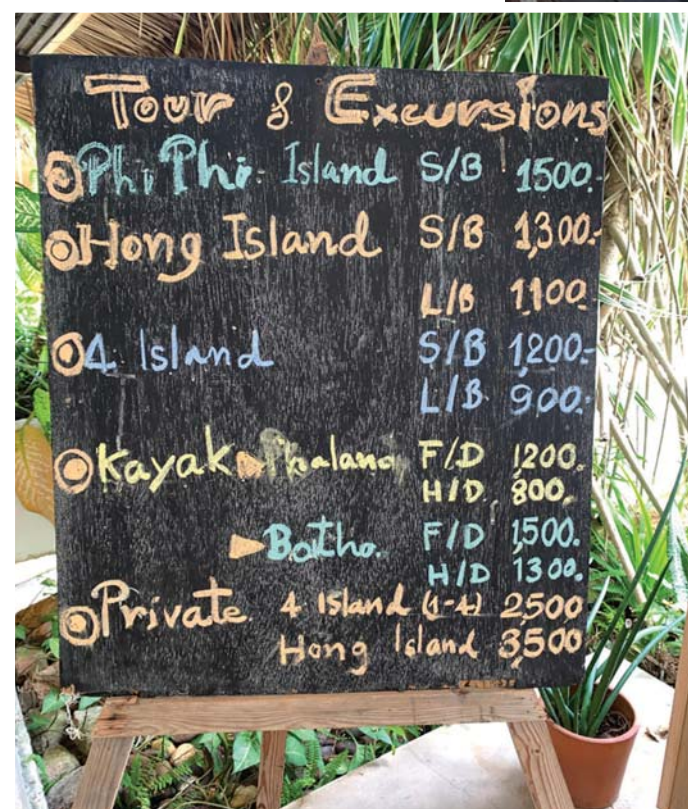 Tour & Excursions
Phi Phi Island S/B 1500.-
Hong Island S/B 1,300.-
L/B 1,100.
4 Island S/B 1,200.-
L/B 900.
Kayak F/D 1,200.
H/D 800.
F/D 1,500.
H/D 1300.
Private 4 Island (1-4) 2,500
Hong Island 3,500